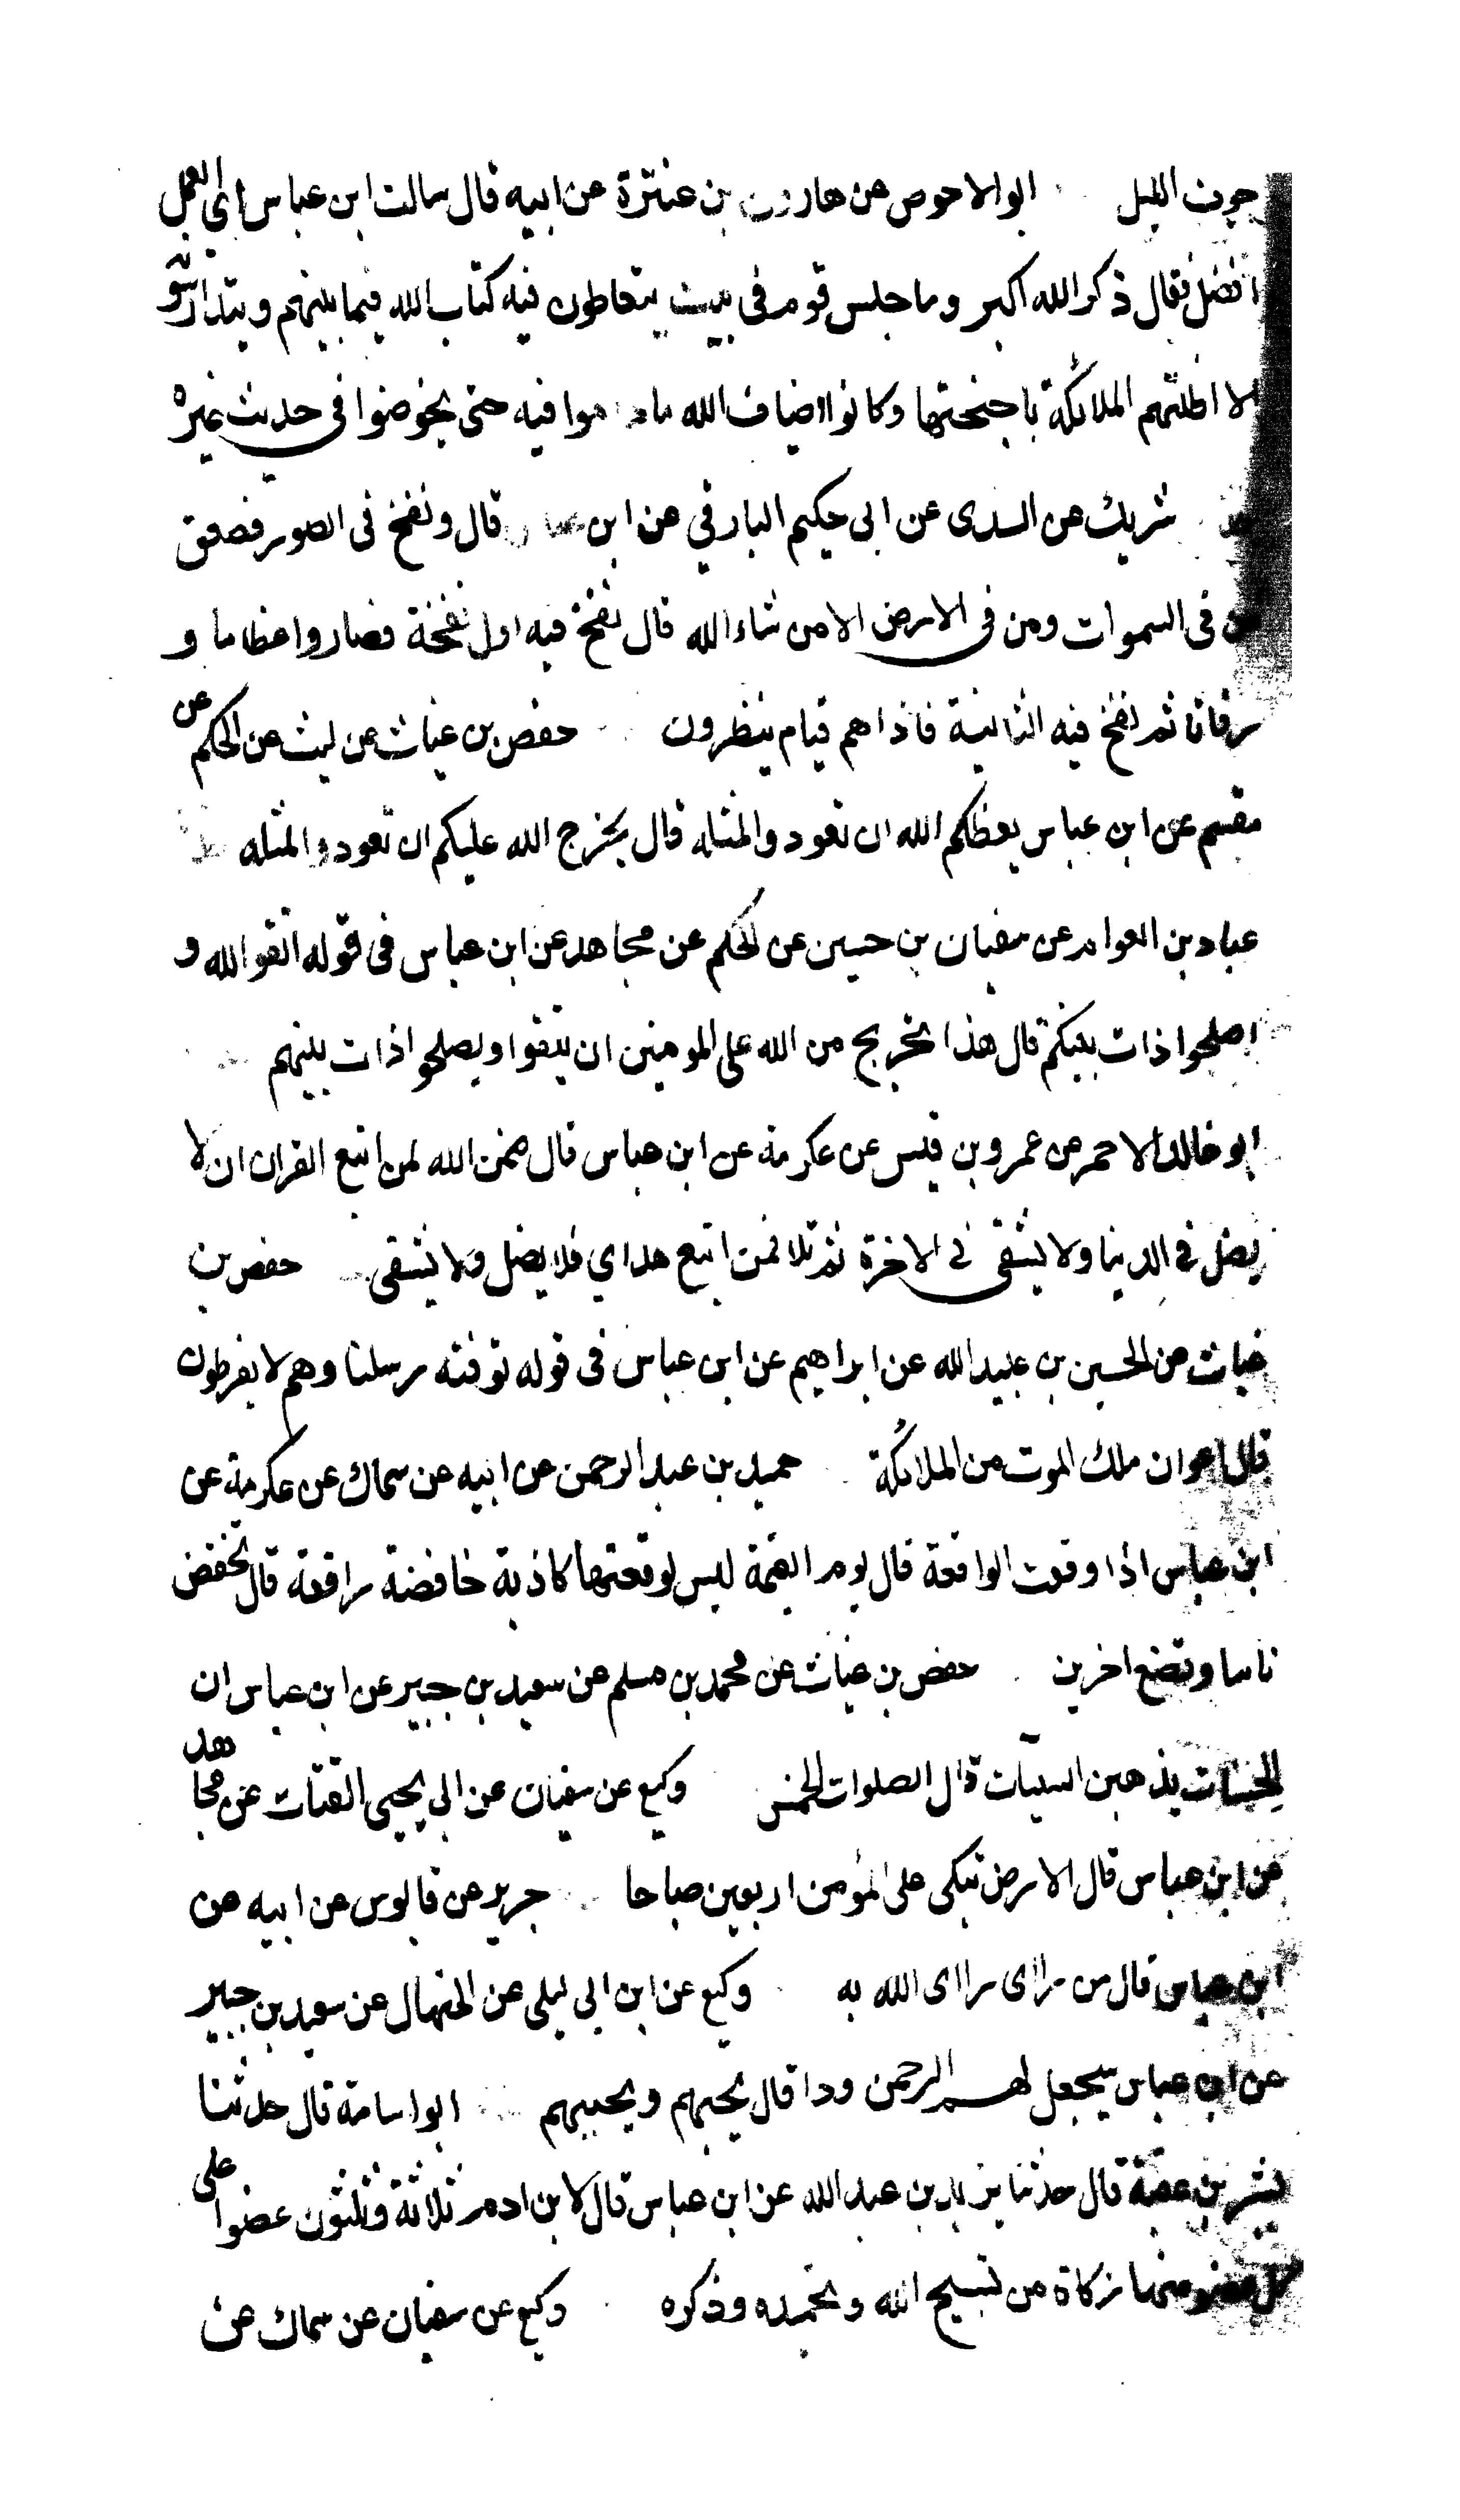 جوف الليل ابو الاحوص عن هارون بن عنترة عن ابيه قال سالت ابن عباس اي العمل
افضل فقال ذكر الله اكبر وما جلس قوم في بيت يتعاطون فيه كتاب الله فيما بينهم ويتدارسونه
الا اظلتهم الملائكة باجنحتها وكانوا اضياف الله ما داموا فيه حتى يخوضوا في حديث غيره
شريك عن السدى عن ابى حكيم البارقي عن ابن قال ونفخ فى الصور فصعق
من فى السموات ومن فى الارض الا من شاء الله قال نفخ فيه اول نفخة فصاروا عظاما و
رفاتا ثم نفخ فيه الثانية فاذا هم قيام ينظرون حفص بن غياث عن ليث عن الحكم عن
مقسم عن ابن عباس يعظكم الله ان تعودوا لمثله قال يحرج الله عليكم ان تعودوا لمثله
عباد بن العوام عن سفيان بن حسين عن الحكم عن مجاهد عن ابن عباس فى قوله اتقوا الله و
اصلحوا ذات بينكم قال هذا تحريج من الله على المومنين ان يتقوا ويصلحوا ذات بينهم
ابو خالد الاحمر عن عمرو بن قيس عن عكرمة عن ابن عباس قال ضمن الله لمن اتبع القران ان لا
يضل في الدنيا ولا يشقى في الاخرة ثم تلا فمن اتبع هداي فلا يضل ولا يشقى حفص بن
غياث عن الحسين بن عبيد الله عن ابراهيم عن ابن عباس فى قوله توفته رسلنا وهم لا يفرطون
قال اعوان ملك الموت من الملائكة حميد بن عبد الرحمن عن ابيه عن سماك عن عكرمة عن
ابن عباس اذا وقعت الواقعة قال يوم القيمة ليس لوقعتها كاذبة خافضة رافعة قال تخفض
ناسا وتضع اخرين حفص بن غياث عن محمد بن مسلم عن سعيد بن جبير عن ابن عباس ان
الحسنات يذهبن السيئات قال الصلوات الخمس وكيع عن سفيان عن ابى يحيى القتات عن مجاهد
عن ابن عباس قال الارض تبكى على المؤمن اربعين صباحا جرير عن قابوس عن ابيه عن
ابن عباس قال من راءى راءى الله به وكيع عن ابن ابى ليلى عن المنهال عن سعيد بن جبير
عن ابن عباس سيجعل لهم الرحمن ودا قال يحبهم ويحببهم ابو اسامة قال حدثنا
بشر بن عقبة قال حدثنا يزيد بن عبد الله عن ابن عباس قال لابن ادم ثلاثة وثلثون عضوا على
كل عضو منها زكاة من تسبيح الله وتحميده وذكره وكيع عن سفيان عن سماك عن